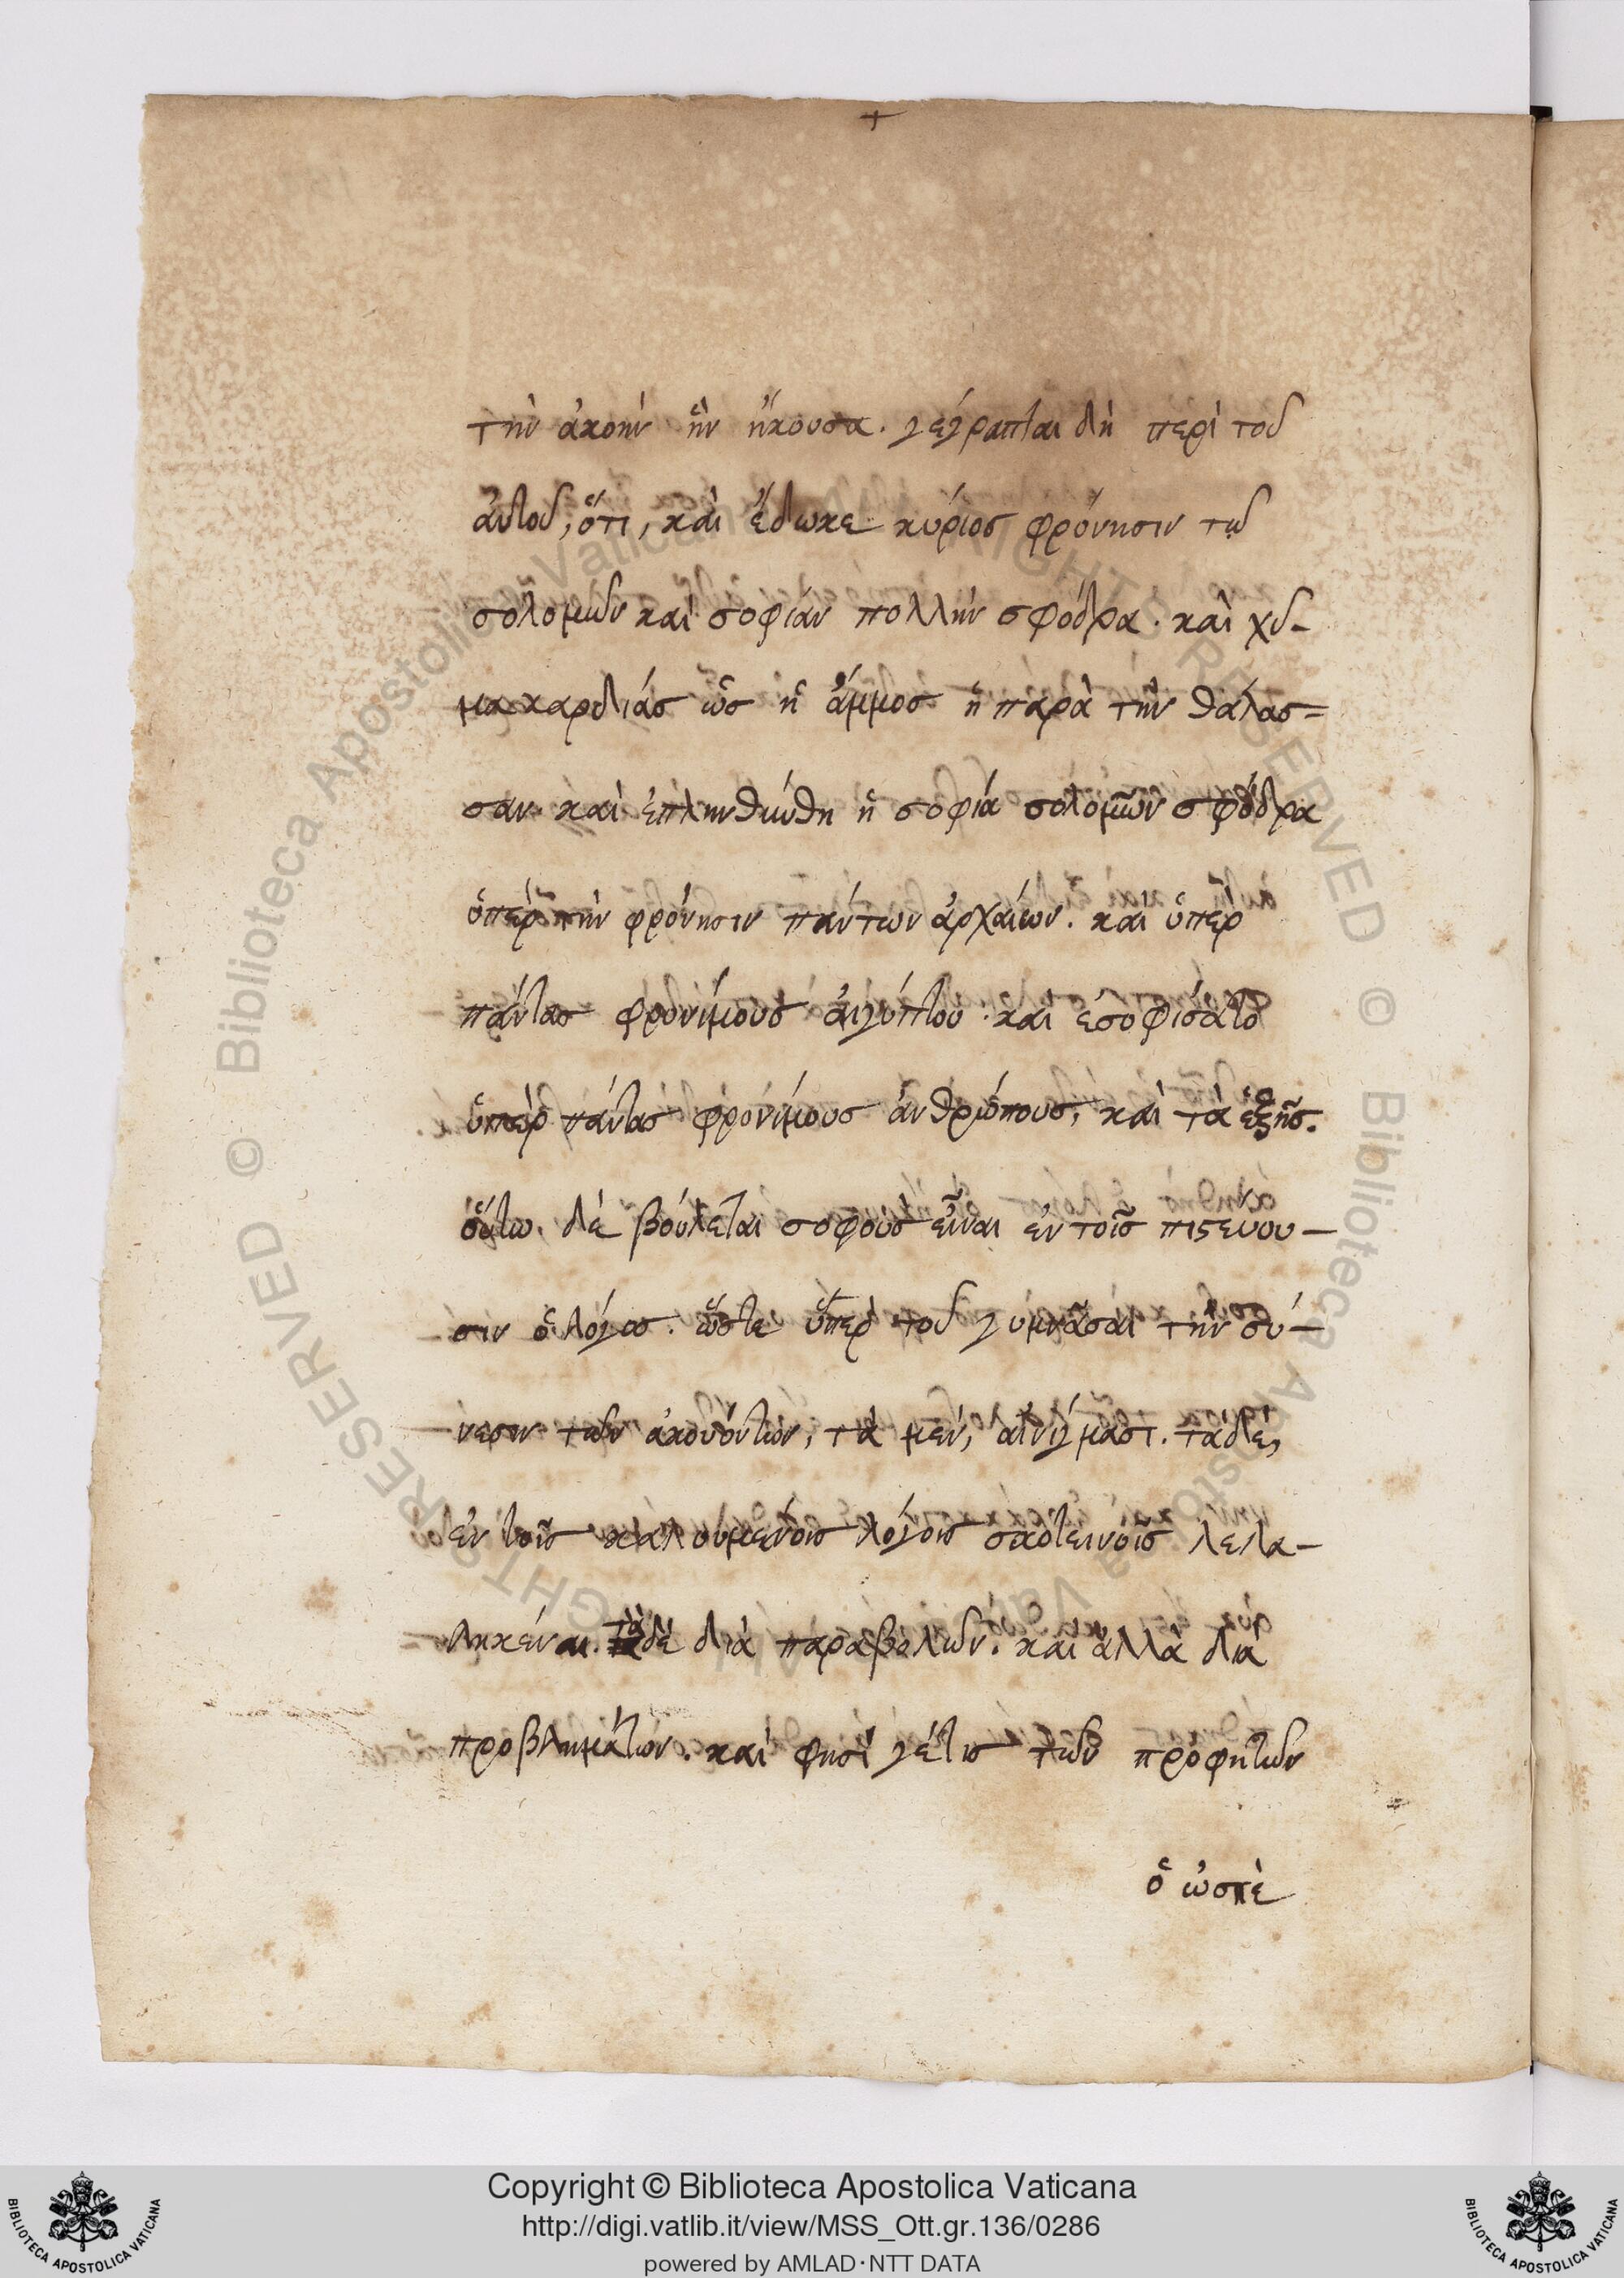 +
τὴν ἀκοὴν ἣν ἤκουσα. γέγραπται δὴ περὶ τοῦ
ἀυτοῦ, ὅτι, καὶ ἔδωκε κύριος φρόνησιν τῷ
σολομῶν καὶ σοφίαν πολλὴν σφόδρα. καὶ χῦ-
μα καρδίας ὡς ἡ ἄμμος ἡ παρὰ τὴν θάλασ=
σαν. καὶ ἐπληνθύνθη ἡ σοφία σολομῶν σφόδρα
ὑπὲρ τὴν φρόνησιν πάντων ἀρχαίων. καὶ ὑπὲρ
πάντας φρονίμους ἀιγύπτου. καὶ ἐσοφίσατο
ὑπὲρ πάντας φρονίμους ἀνθρώπους, καὶ τὰ ἑξῆς.
οὕτω δὲ βούλεται σοφοὺς εἶναι ἐν τοῖς πιστευου-
σιν ὁ λόγος. ὥστε ὑπὲρ τοῦ γυμνᾶσαι τὴν σύ-
νεσιν τῶν ἀκουόντων, τὰ μὲν, αἰνίγμασι. τὰ δὲ,
ἐν τοῖς καλουμένοις λόγοις σκοτεινοῖς λελα-
ληκέναι. τὰ δὲ διὰ παραβολῶν. καὶ ἀλλὰ διὰ
προβλημάτων. καὶ φησί γέ τις τῶν προφητῶν
ὁ ὡσηὲ
Copyright © Biblioteca Apostolica Vaticana
http://digi.vatlib.it/view/MSS_Ott.gr.136/0286
powered by AMLAD·NTT DATA
BIBLIOTECA APOSTOLICA VATICANA
BIBLIOTECA APOSTOLICA VATICANA